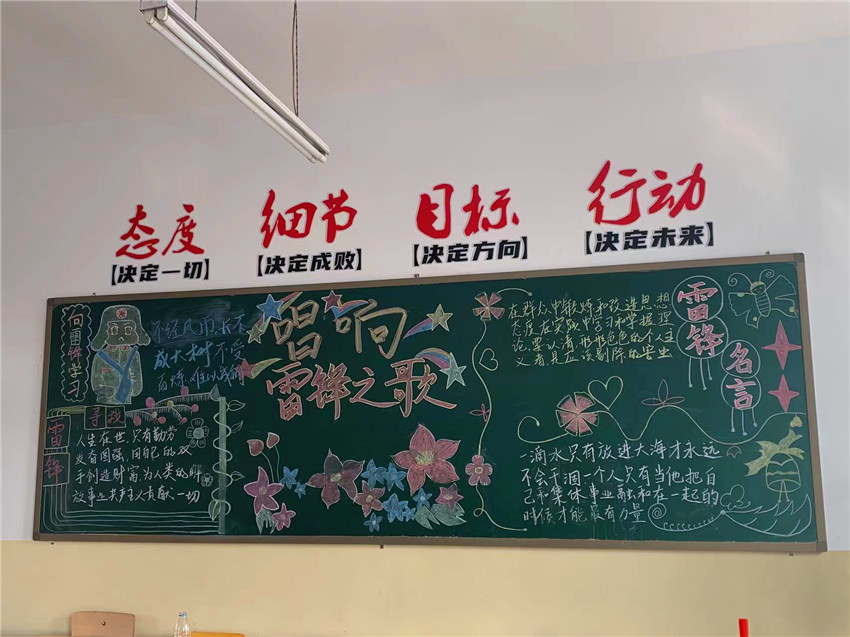 态度 细节 目标 行动
【决定一切】 【决定成败】 【决定方向】 【决定未来】
向雷锋学习
不经风雨长不
成大树不受
百炼难以成钢
雷锋
寻找
人生在世只有勤劳
发奋图强用自己的双
手创造财富为人类的解
放事业共产主义贡献一切
唱响
雷锋之歌
在群众中锻炼和改造思想
态度在实践中学习和掌握理
论要认清形形色色的个人主
义者是应该剔除的害虫
雷锋
名言
一滴水只有放进大海才永远
不会干涸一个人只有当他把自
己和集体事业融和在一起的
时候才能最有力量